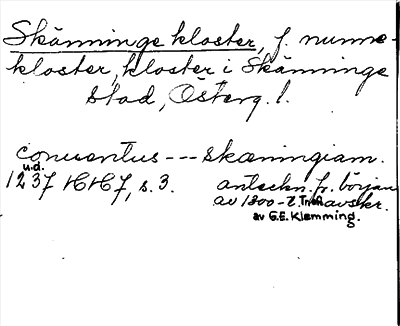 Skänninge kloster, f. nunne-
kloster, kloster i Skänninge
stad, Österg. l.
conventus --- skæningiam.
u.d.
1237 HH 7, s. 3. anteckn. fr. början
av 1300-t. i avskr.
av G.E. Klemming.